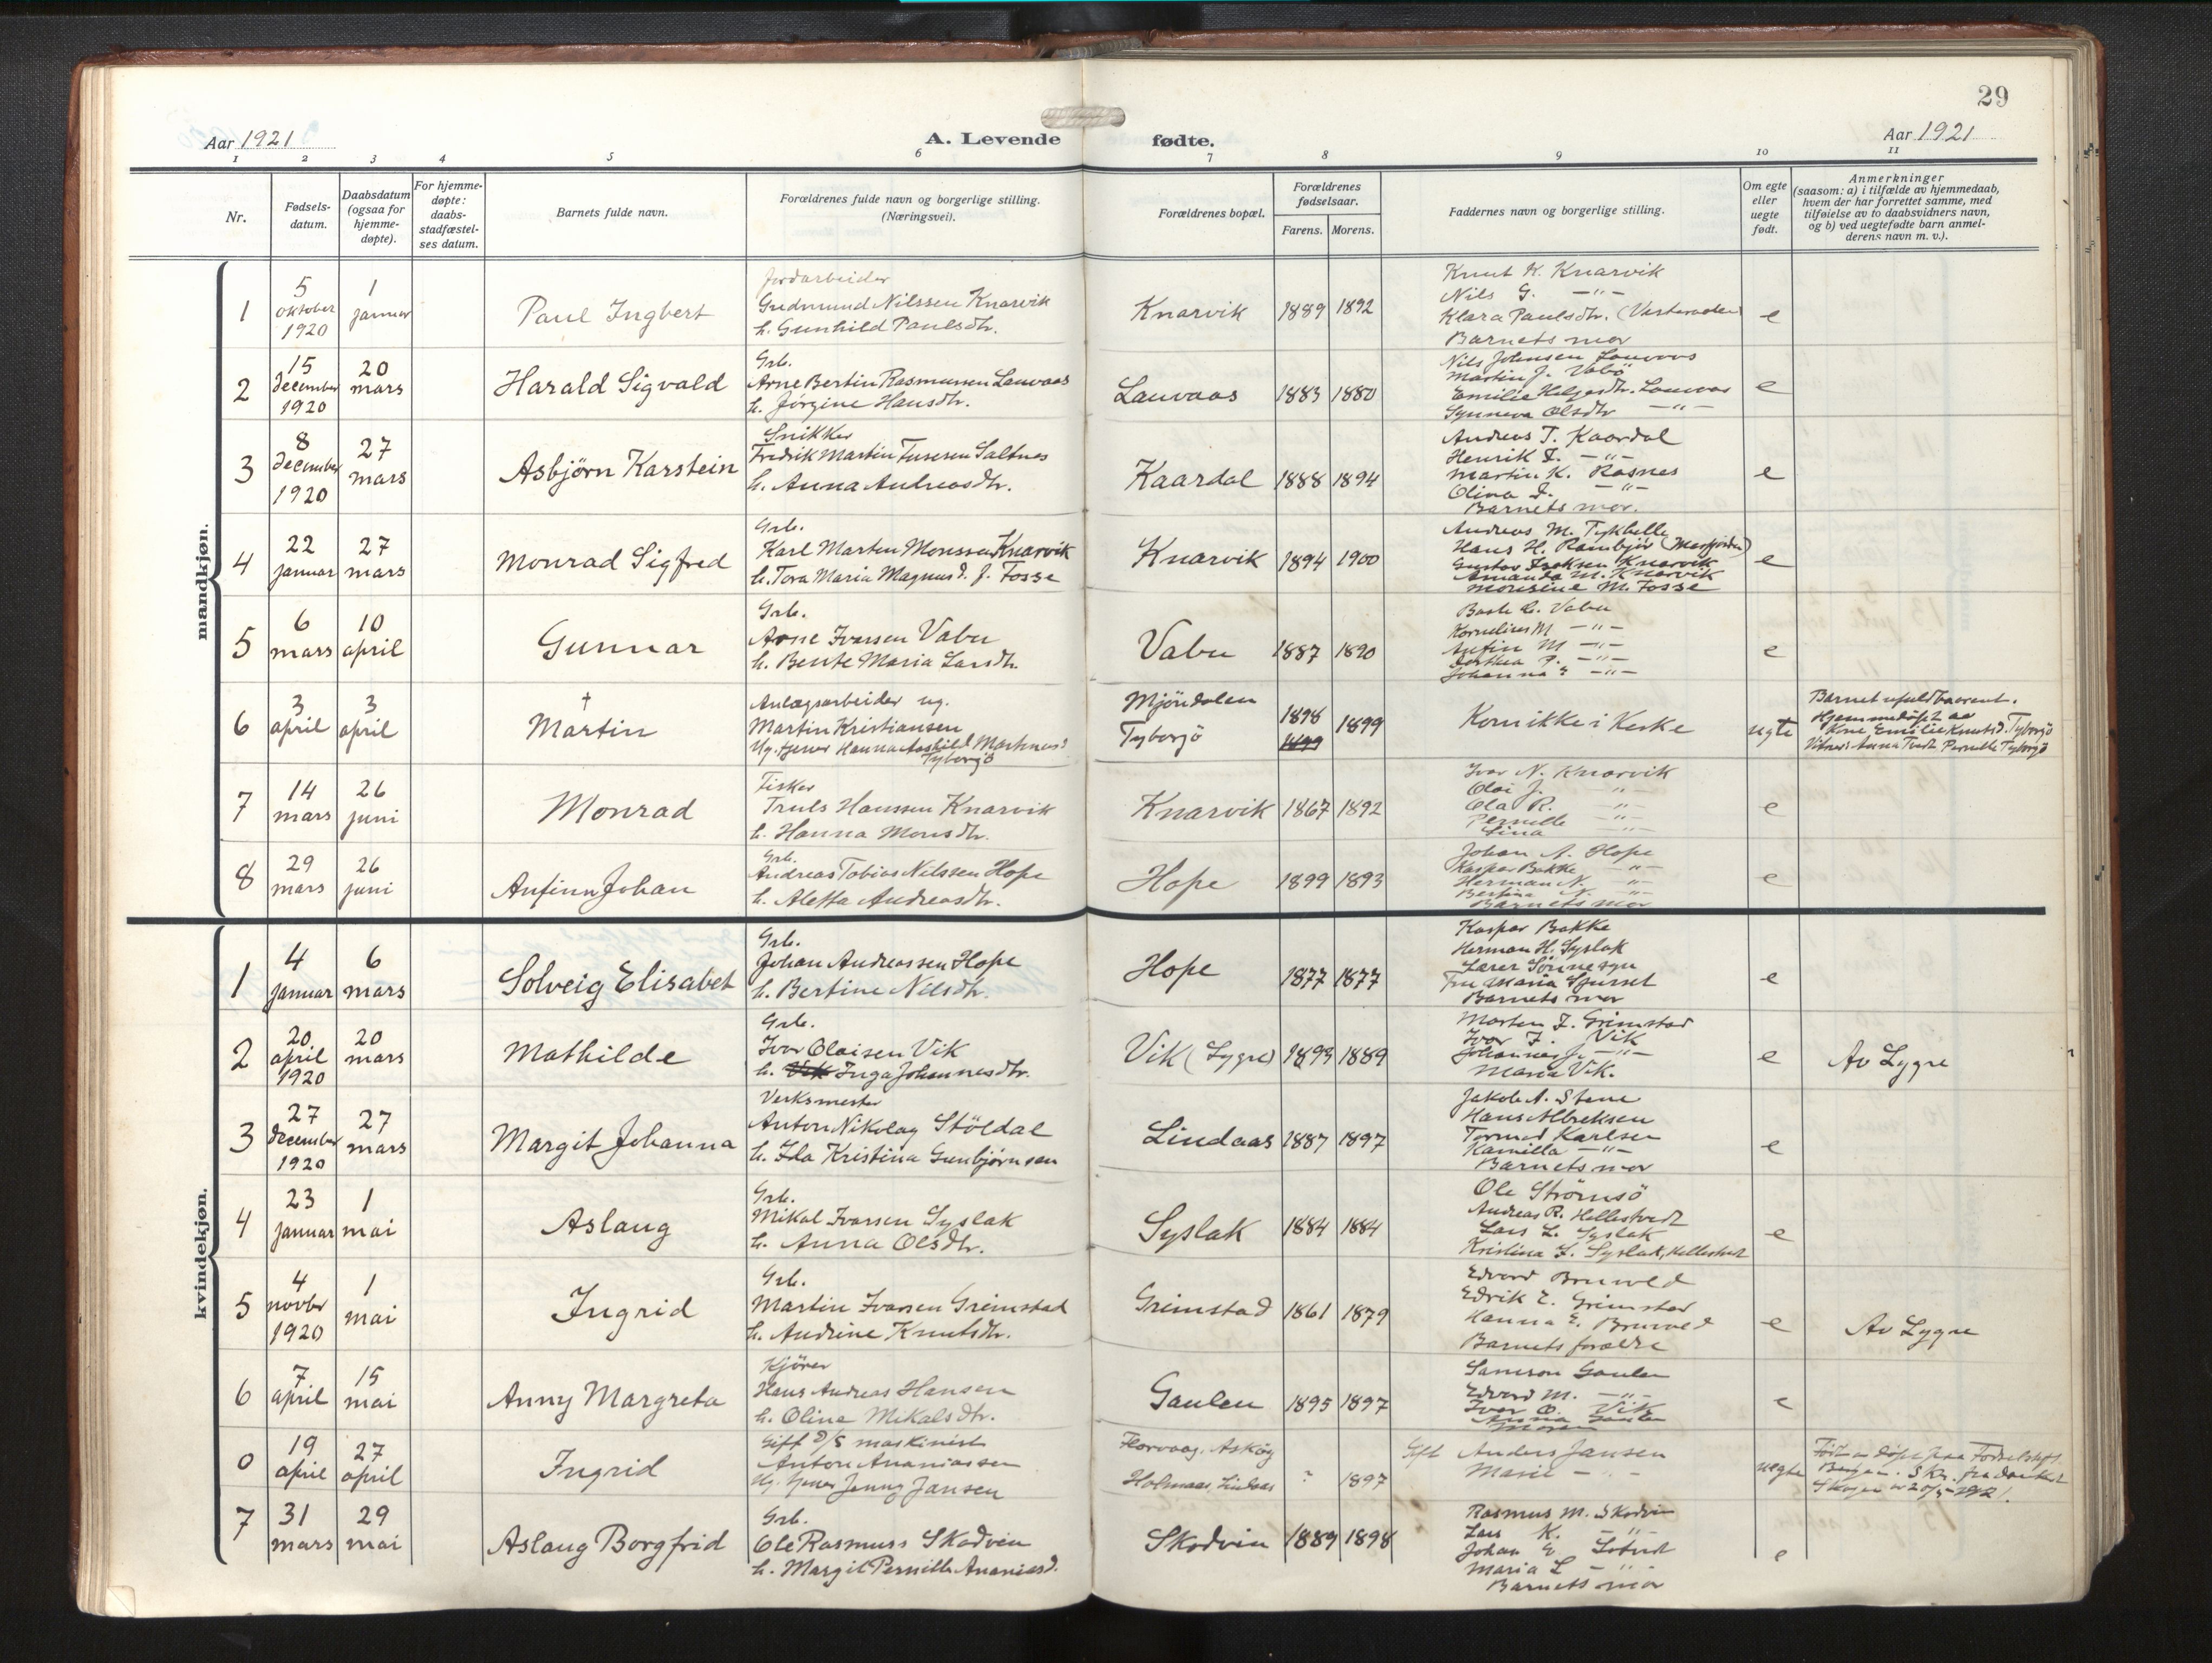 29
Aar 1921
A. Levende fødte.
Aar 1921
1 2 3 4 5 6 7 8 9 10 11
Nr.
Fødsels-
datum.
Daabsdatum
(ogsaa for
hjemme-
døpte).
For hjemme-
døpte:
daabs-
stadfæstel-
ses datum.
Barnets fulde navn.
Forældrenes fulde navn og borgerlige stilling.
(Næringsvei).
Forældrenes bopæl.
Forældrenes
fødselsaar.
Farens. Morens.
Faddernes navn og borgerlige stilling.
Om egte
eller
uegte
født.
Anmerkninger
(saasom: a) i tilfælde av hjemmedaab,
hvem der har forrettet samme, med
tilføielse av to daabsvidners navn,
og b) ved uegtefødte barn anmel-
derens navn m. v.).
mandkjøn.
1
5
oktober
1920
1
januar
Paul Ingbert
Jordarbeider
Gudmund Nilssen Knarvik
h. Gunhild Paulsdtr.
Knarvik
1889 1892
Knut K. Knarvik
Nils G. -"-
Klara Paulsdtr.
Barnets mor
e
2
15
december
1920
20
mars
Harald Sigvald
Grb.
Arne Bertin Rasmussen Lauvaas
h. Jørgine Hansdtr.
Lauvaas
1883 1880
Nils Johnsen Lauvaas
Martin J. Vabö
Emilie Helgesdtr. Lauvaas
Synneva Olsdtr -"-
e
3
8
december
1920
27
mars
Asbjørn Karstein
Snikker
Fredrik Martin Saltnes
h. Anna Andreasdtr.
Kaardal
1888 1894
Andreas T. Kaardal
Henrik T. -"-
Martin K. Rasnes
Olina -"-
Barnets mor.
e
4
22
januar
27
mars
Monrad Sigfred
Grb.
Karl Marten Monssen Knarvik
h. Tora Maria Magnusd. f. Fosse
Knarvik
1894 1900
Andreas M. Tykhelle
Hans H. (Masfjorden)
Gustav Isaksen Knarvik
Amanda M. Knarvik
Monsine M. Fosse
e
5
6
mars
10
april
Gunnar
Grb.
Arne Ivarsen Vabu
h. Bente Maria Larsdtr.
Vabu
1887 1890
Vabu
Kornelius M -"-
Anfin M -"-
-"-
Johanna -"-
e
6
3
april
3
april
†
Martin
Anlægsarbeider ug.
Martin Kristiansen
Ug. Hanna Aashild Martinusd.
Tyborgø
Mjöndalen
Tyborgø
1898
1899
1899
Kom ikke i Kirke
uegte
Barnet ufuldbaarent.
Hjemmedøpt av
Kone Emilie Knutsd. Tyborgø
Pernille Tyborgø
7
14
mars
26
juni
Monrad
Fisker
Truls Hanssen Knarvik
h. Hanna Monsdtr.
Knarvik
1867 1892
Ivar N. Knarvik
Olai J. -"-
Ola R. -"-
Pernille -"-
Lina -"-
e
8
29
mars
26
juni
Anfinn Johan
Grb.
Andreas Tobias Nilssen Hope
h. Aletta Andreasdtr.
Hope
1899 1893
Johan A. Hope
Kaspar Bakke -"-
Herman N. -"-
Bertina N. -"-
Barnets mor
e
kvindekjøn.
1
4
januar
6
mars
Solveig Elisabet
Grb.
Johan Andreassen Hope
h. Bertine Nilsdtr.
Hope
1877 1877
Kaspar Bakke
Herman H. Syslak
Lærer Sønnesyn
Fru Maria
Barnets mor
e
2
20
april
1920
20
mars
Mathilde
Grb.
Ivar Olaisen Vik
h. Vik Inga Johannesdtr.
Vik (Lygre)
1893 1889
Morten I. Grimstad
Ivar I. Vik
Johannes J. -"-
Maria Vik.
e
Av Lygre
3
27
december
1920
27
mars
Margit Johanna
Verksmester
Anton Nikolay Stöldal
h. Ida Kristina Gunbjørnsen
Lindaas
1887 1897
Jakob A. Stene
Hans Albreksen
Tormod Karlsen
Kamilla -"-
Barnets mor
e
4
23
januar
1
mai
Aslaug
Grb.
Mikal Ivarsen Syslak
h. Anna Olsdtr.
Syslak
1884 1884
Ole Strømsö
Andreas R. Hellestvedt
Lars L. Syslak
Kristina L. Syslak,
e
5
4
novbr
1920
1
mai
Ingrid
Grb.
Martin Ivarsen Grimstad
h. Andrine Knutsdtr.
Grimstad
1861 1879
Edvard Bruvold
Edrik E. Grimstad
Hanna E. Bruvold
Barnets forældre
e
Av Lygre
6
7
april
15
mai
Anny Margreta
Kjörer
Hans Andreas Hansen
h. Oline Mikalsdtr.
Gaulen
1895 1897
Samson Gaulen
Edvard M. -"-
Ivar O. Vik
Anna Gaulen
Moren
e
0
19
april
27
april
Ingrid
Gift D/S maskinist
Anton Ananiassen
Ug. Jenny Jansen
Florvaag, Askøy
Holmaas, Lindaas
? 1897
Gift Anders Jansen
Marie -"-
uegte
7
31
mars
29
mai
Aslaug Borgfrid
Grb.
Ole Rasmuss Skodvin
h. Margit Pernille Ananiasd.
Skodvin
1889 1898
Rasmus M. Skodvin
Lars K. -"-
Johan E.
Maria L -"-
Barnets mor
e